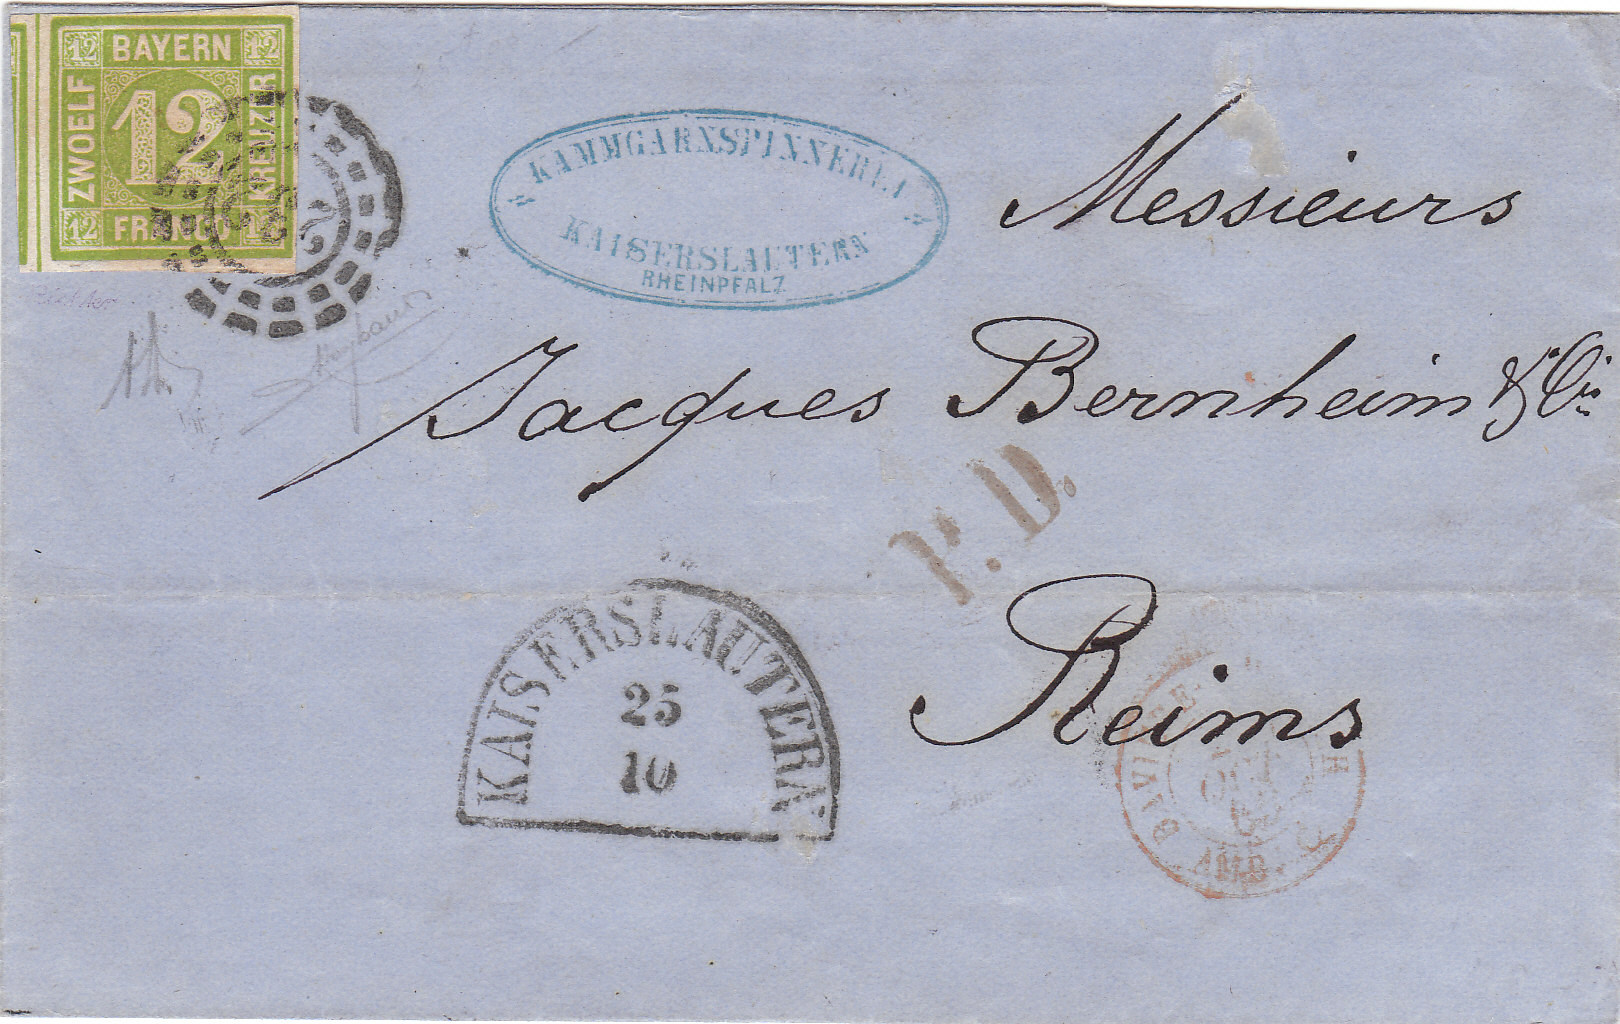 12 BAYERN 12
ZWOELF
12
KREUZER
12 FRANCO 12
KAMMGARNSPINNEREI
KAISERSLAUTERN
RHEINPFALZ
Messieurs
Jacques Bernheim & Cie
P.D.
Reims
KAISERSLAUTERN
25
10
BAVIERE
AMB.